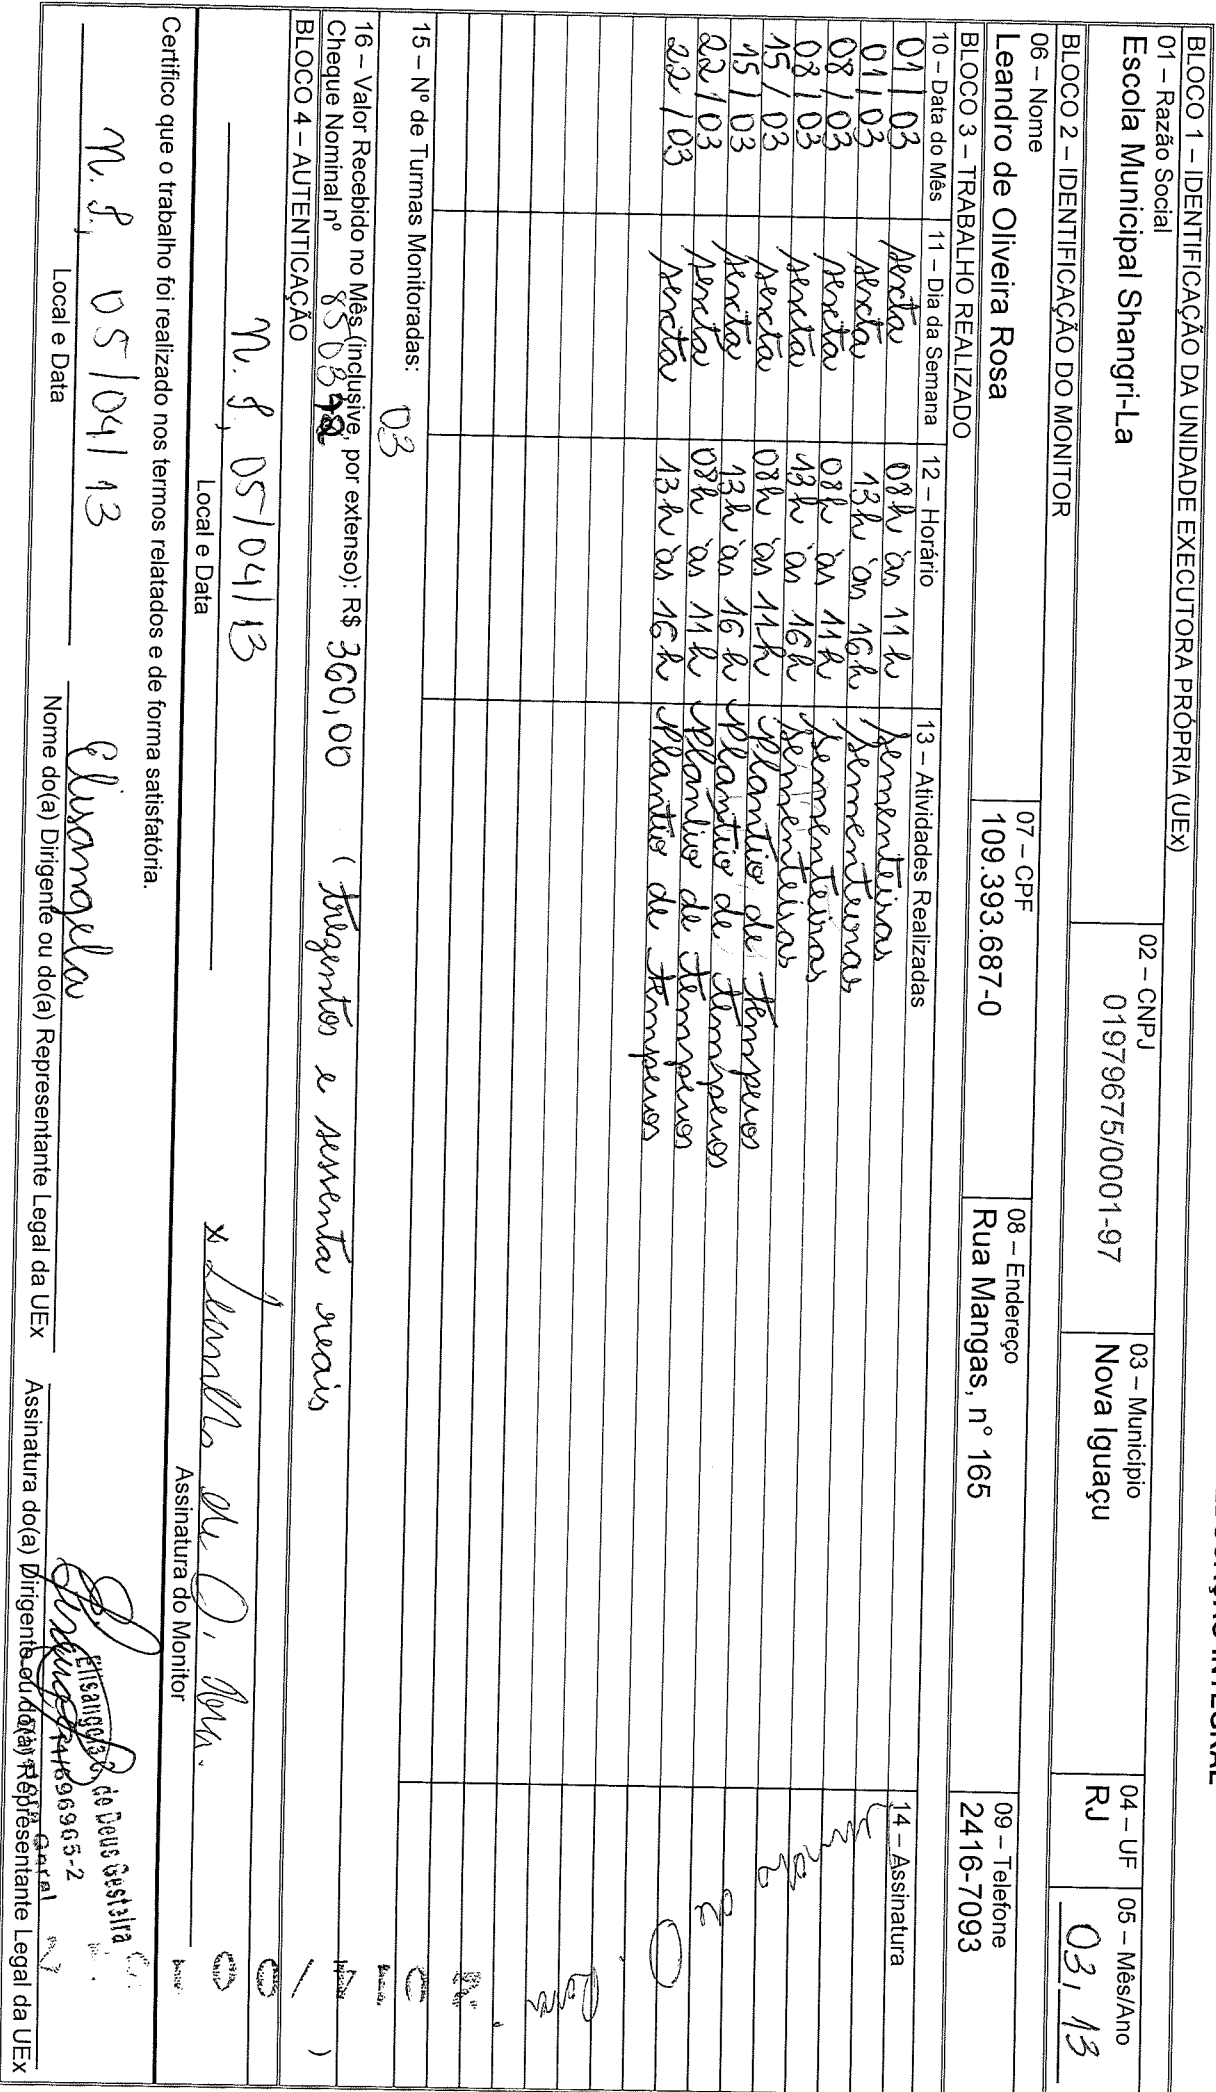 BLOCO 1 – IDENTIFICAÇÃO DA UNIDADE EXECUTORA PRÓPRIA (UEx)
01 – Razão Social
Escola Municipal Shangri-La
02 – CNPJ
01979675/0001-97
03 – Município
Nova Iguaçu
04 – UF
RJ
05 – Mês/Ano
03, 13
BLOCO 2 – IDENTIFICAÇÃO DO MONITOR
06 – Nome
Leandro de Oliveira Rosa
07 – CPF
109.393.687-0
08 – Endereço
Rua Mangas, n° 165
09 – Telefone
2416-7093
BLOCO 3 – TRABALHO REALIZADO
10 – Data do Mês 11 – Dia da Semana 12 – Horário 13 – Atividades Realizadas 14 – Assinatura
01/03 sexta 08h às 11h sementeiras
01/03 sexta 13h às 16h sementeiras
08/03 sexta 08h às 11h sementeiras
08/03 sexta 13h às 16h sementeiras
15/03 sexta 08h às 11h plantio de temperos
15/03 sexta 13h às 16h plantio de temperos
22/03 sexta 08h às 11h plantio de temperos
22/03 sexta 13h às 16h plantio de temperos
15 – Nº de Turmas Monitoradas: 03
16 – Valor Recebido no Mês (inclusive, por extenso): R$ 360,00 (trezentos e sessenta reais )
Cheque Nominal nº
BLOCO 4 – AUTENTICAÇÃO
N. I, 05/04/13
Local e Data
x Leandro de O. Rosa.
Assinatura do Monitor
Certifico que o trabalho foi realizado nos termos relatados e de forma satisfatória.
N. I, 05/04/13
Local e Data
Elisangela
Nome do(a) Dirigente ou do(a) Representante Legal da UEx
Elisangela C. de Deus Gesteira
Assinatura do(a) Dirigente ou do(a) Representante Legal da UEx